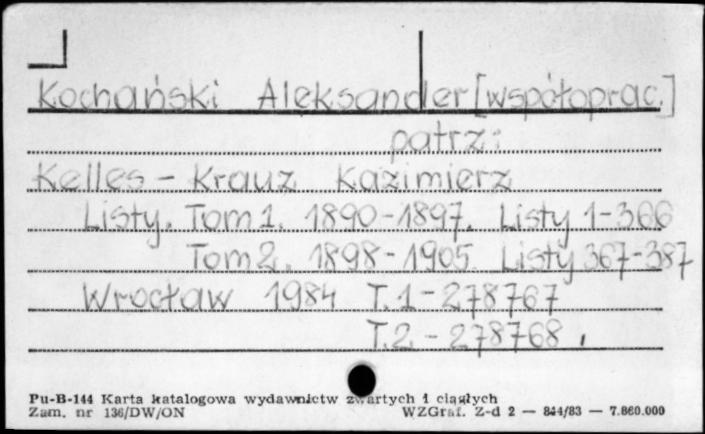 Kochański Aleksander [współoprac.]
patrz:
Kelles-Krauz Kazimierz
Listy. Tom 1. 1890-1897. Listy 1-366
Tom 2. 1898-1905. Listy 367-387
Wrocław 1984 T.1-278767
T.2-278768.
Pu-B-144 Karta katalogowa wydawnictw zwartych i ciągłych
Zam. nr 136/DW/ON WZGraf. Z-d 2 — 844/83 — 7.860.000